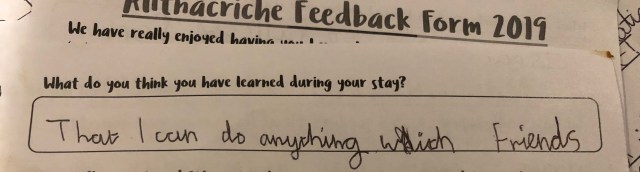 Feedback Form 2019
We have really enjoyed having
What do you think you have learned during your stay?
That I can do anything which Friends